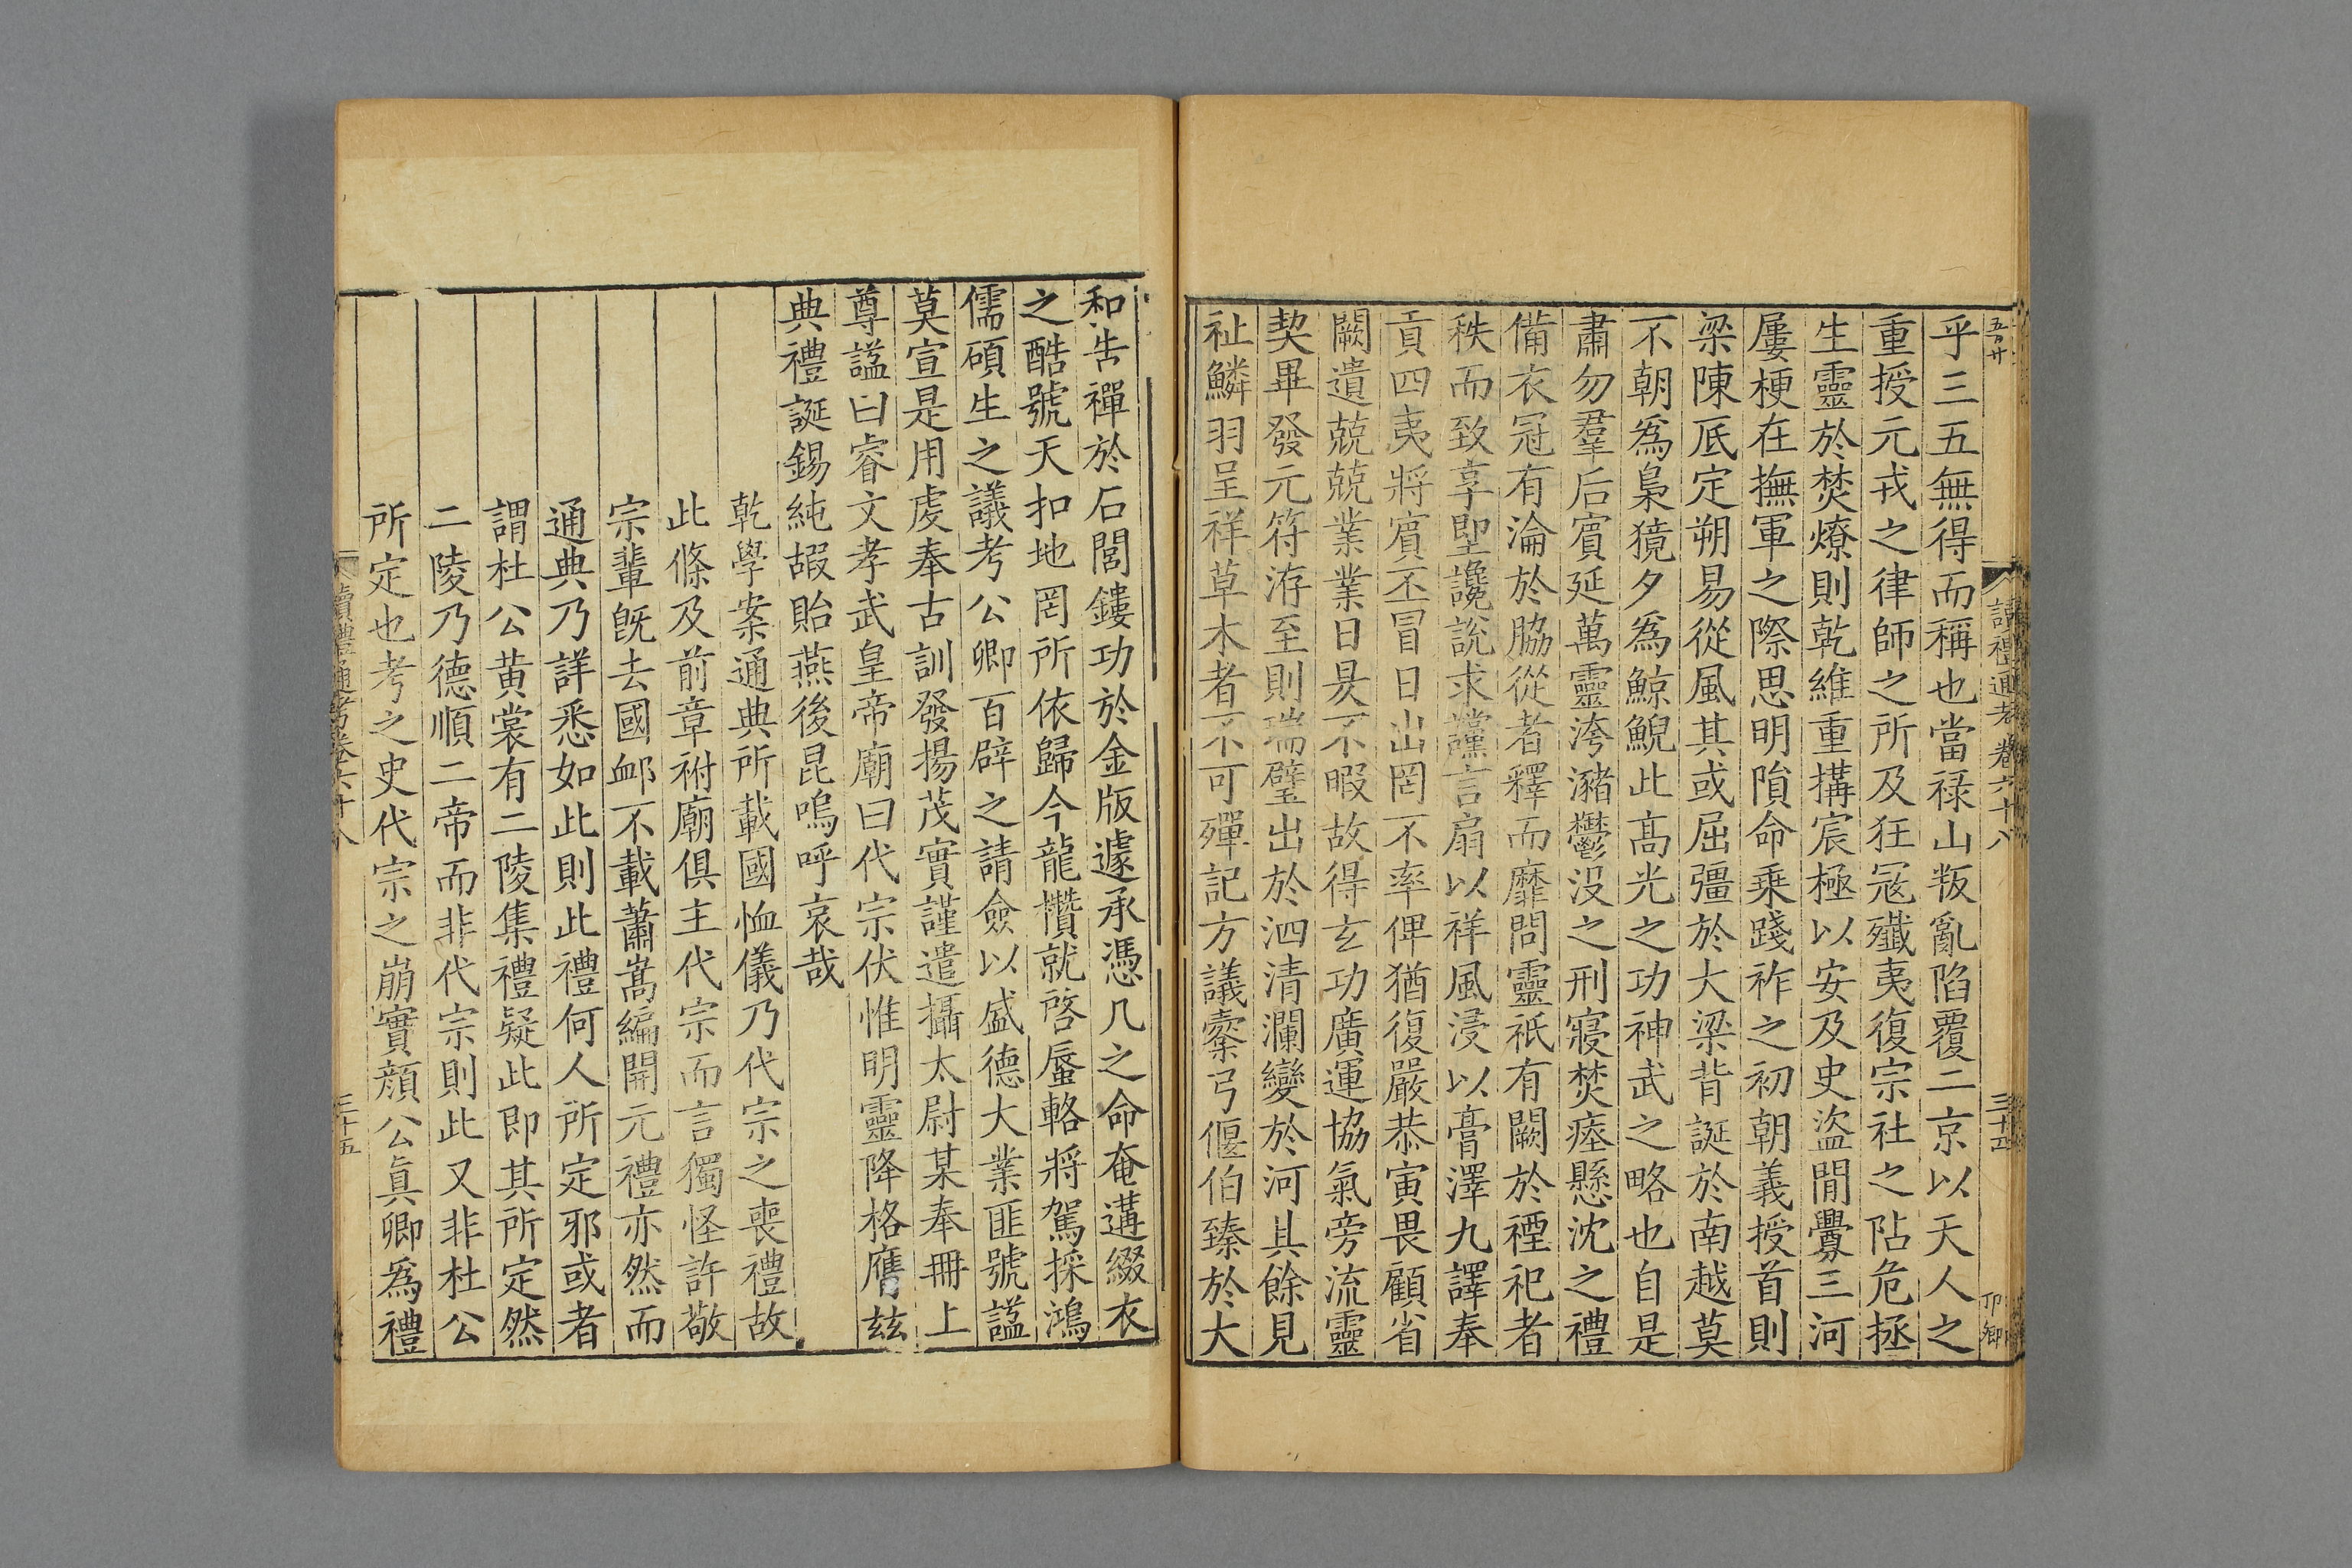 讀禮通考卷六十八
三十四
乎三五無得而稱也當祿山叛亂陷覆二京以天人之
重授元戎之律師之所及狂寇殲夷復宗社之阽危拯
生靈於焚燎則乾維重搆宸極以安及史盜閒釁三河
屢梗在撫軍之際思明隕命乘踐祚之初朝義授首則
梁陳厎定朔易從風其或屈彊於大梁背誕於南越莫
不朝爲梟獍夕爲鯨鯢此高光之功神武之略也自是
肅勿羣后賔延萬靈洿瀦鬱没之刑寢焚瘞懸沈之禮
備衣冠有淪於脇從者釋而靡問靈祇有闕於禋祀者
秩而致享堲讒説求讜言扇以祥風浸以膏澤九譯奉
貢四夷將賔丕冒日出罔不率俾猶復嚴恭寅畏顧省
闕遺兢兢業業日昃不暇故得玄功廣運協氣旁流靈
契畢發元符洊至則瑞璧出於泗清瀾變於河其餘見
祉鱗羽呈祥草木者不可殫記方議櫜弓偃伯臻於大
和告禪於石閭鏤功於金版遽承憑几之命奄遘綴衣
之酷號天扣地罔所依歸今龍欑就啓蜃輅將駕採鴻
儒碩生之議考公卿百辟之請僉以盛德大業匪號謚
莫宣是用虔奉古訓發揚茂實謹遣攝太尉某奉冊上
尊謚曰睿文孝武皇帝廟曰代宗伏惟明靈降格膺玆
典禮誕錫純嘏貽燕後昆嗚呼哀哉
乾學案通典所載國恤儀乃代宗之喪禮故
此條及前章祔廟俱主代宗而言獨怪許敬
宗輩旣去國卹不載蕭嵩編開元禮亦然而
通典乃詳悉如此則此禮何人所定邪或者
謂杜公黄裳有二陵集禮疑此即其所定然
二陵乃德順二帝而非代宗則此又非杜公
所定也考之史代宗之崩實顔公眞卿爲禮
讀禮通考卷六十八
三十五